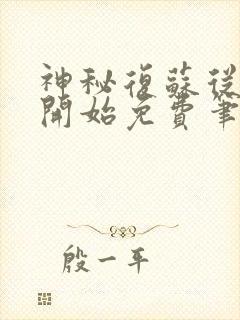 神秘復蘇從
開始免費筆
殷一平